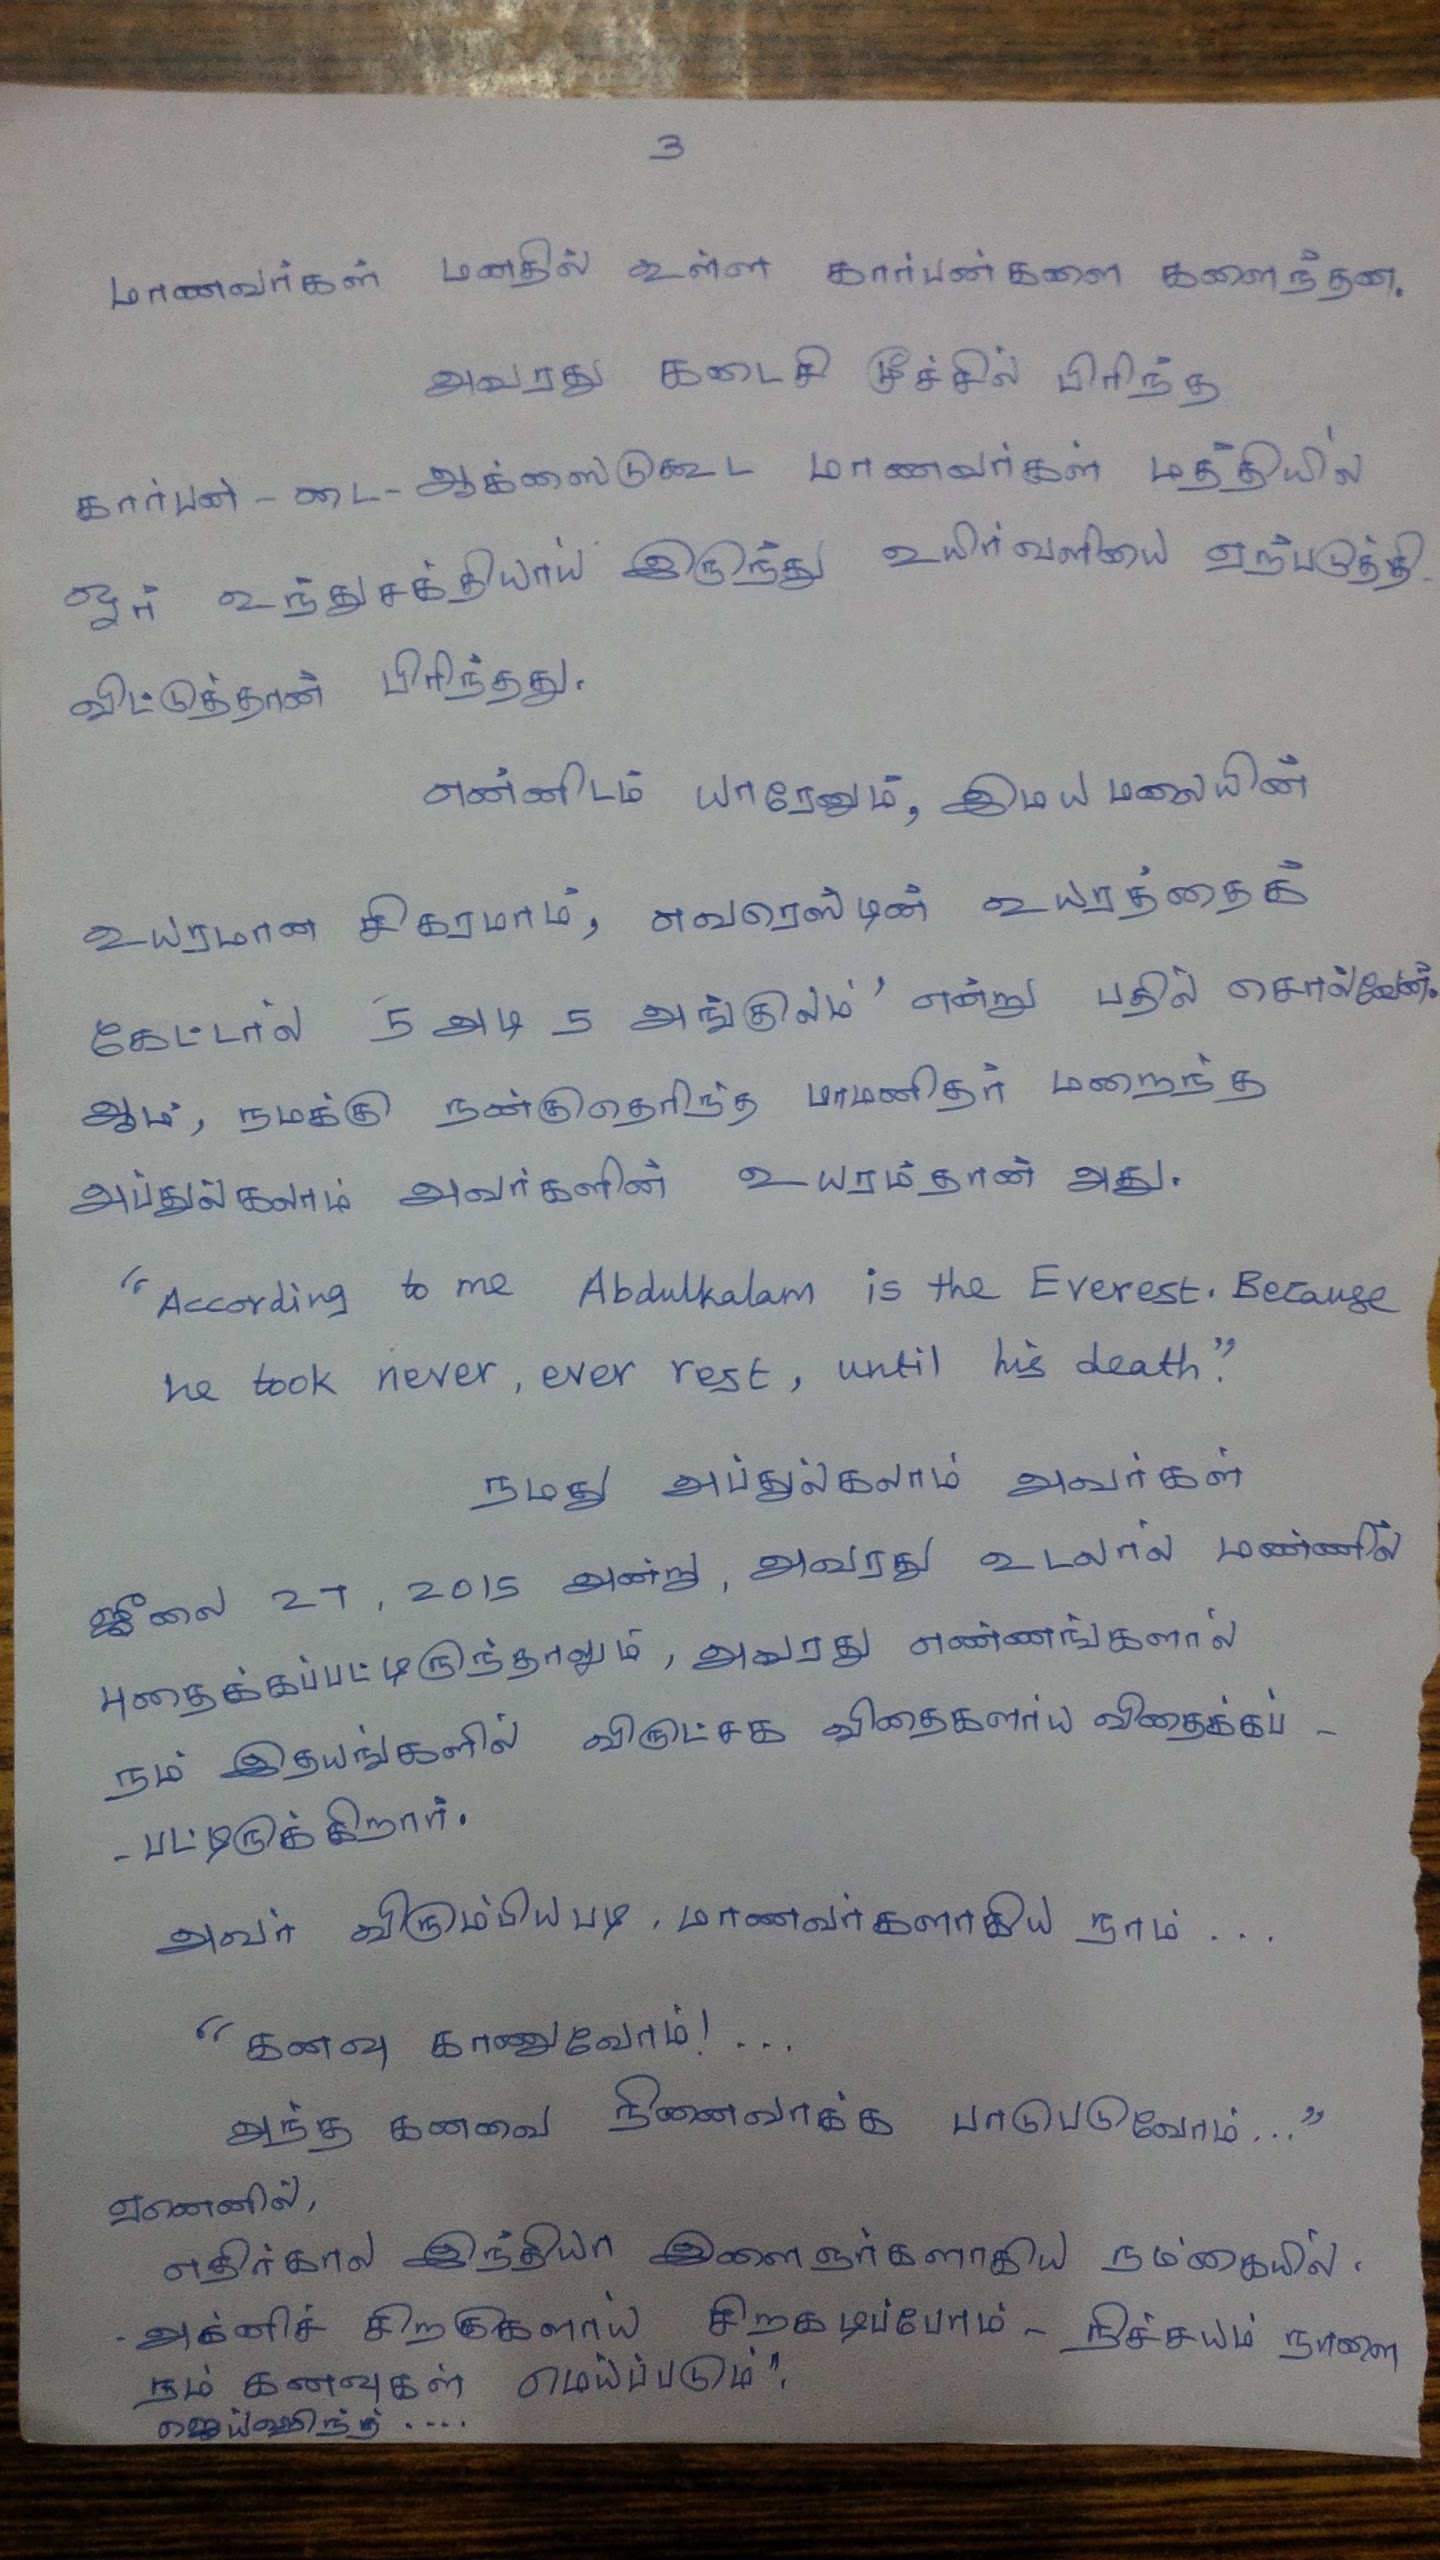 3
மாணவர்கள் மனதில் உள்ள கார்பன்களை களைந்தன.
அவரது கடைசி மூச்சில் பிரிந்த
கார்பன் - டை - ஆக்ஸைடுகூட மாணவர்கள் மத்தியில்
ஓர் உந்துசக்தியாய் இருந்து உயிர்வளியை ஏற்படுத்தி
விட்டுத்தான் பிரிந்தது.
என்னிடம் யாரேனும், இமயமலையின்
உயரமான சிகரமாம், எவரெஸ்டின் உயரத்தைக்
கேட்டால் '5 அடி 5 அங்குலம்' என்று பதில் சொல்வேன்.
ஆம், நமக்கு நன்குதெரிந்த மாமனிதர் மறைந்த
அப்துல்கலாம் அவர்களின் உயரம்தான் அது.
“According to me Abdulkalam is the Everest. Because
he took never, ever rest, until his death”.
நமது அப்துல்கலாம் அவர்கள்
ஜூலை 27, 2015 அன்று, அவரது உடலால் மண்ணில்
புதைக்கப்பட்டிருந்தாலும், அவரது எண்ணங்களால்
நம் இதயங்களில் விருட்சக விதைகளாய் விதைக்கப் -
- பட்டிருக்கிறார்.
அவர் விரும்பியபடி, மாணவர்களாகிய நாம் ...
“கனவு காணுவோம்! ...
அந்த கனவை நினைவாக்க பாடுபடுவோம் ...”
ஏனெனில்,
எதிர்கால இந்தியா இளைஞர்களாகிய நம்கையில்.
- அக்னிச் சிறகுகளாய் சிறகடிப்போம் - நிச்சயம் நாளை
நம் கனவுகள் மெய்ப்படும்".
ஜெய்ஹிந்த் ....